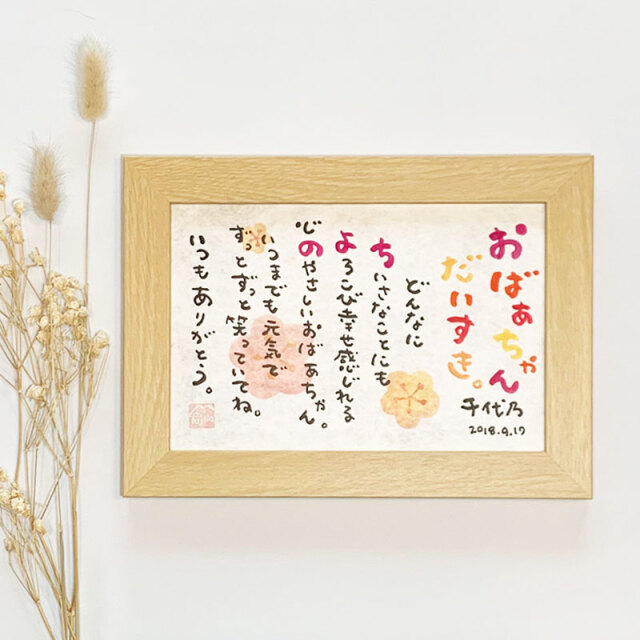 おばぁちゃん
だいすき。
千代乃
2018.9.17
どんなに
ちいさなことにも
よろこび幸せ感じれる
心のやさしいおばあちゃん。
いつまでも元気で
ずっとずっと笑っていてね。
いつもありがとう。